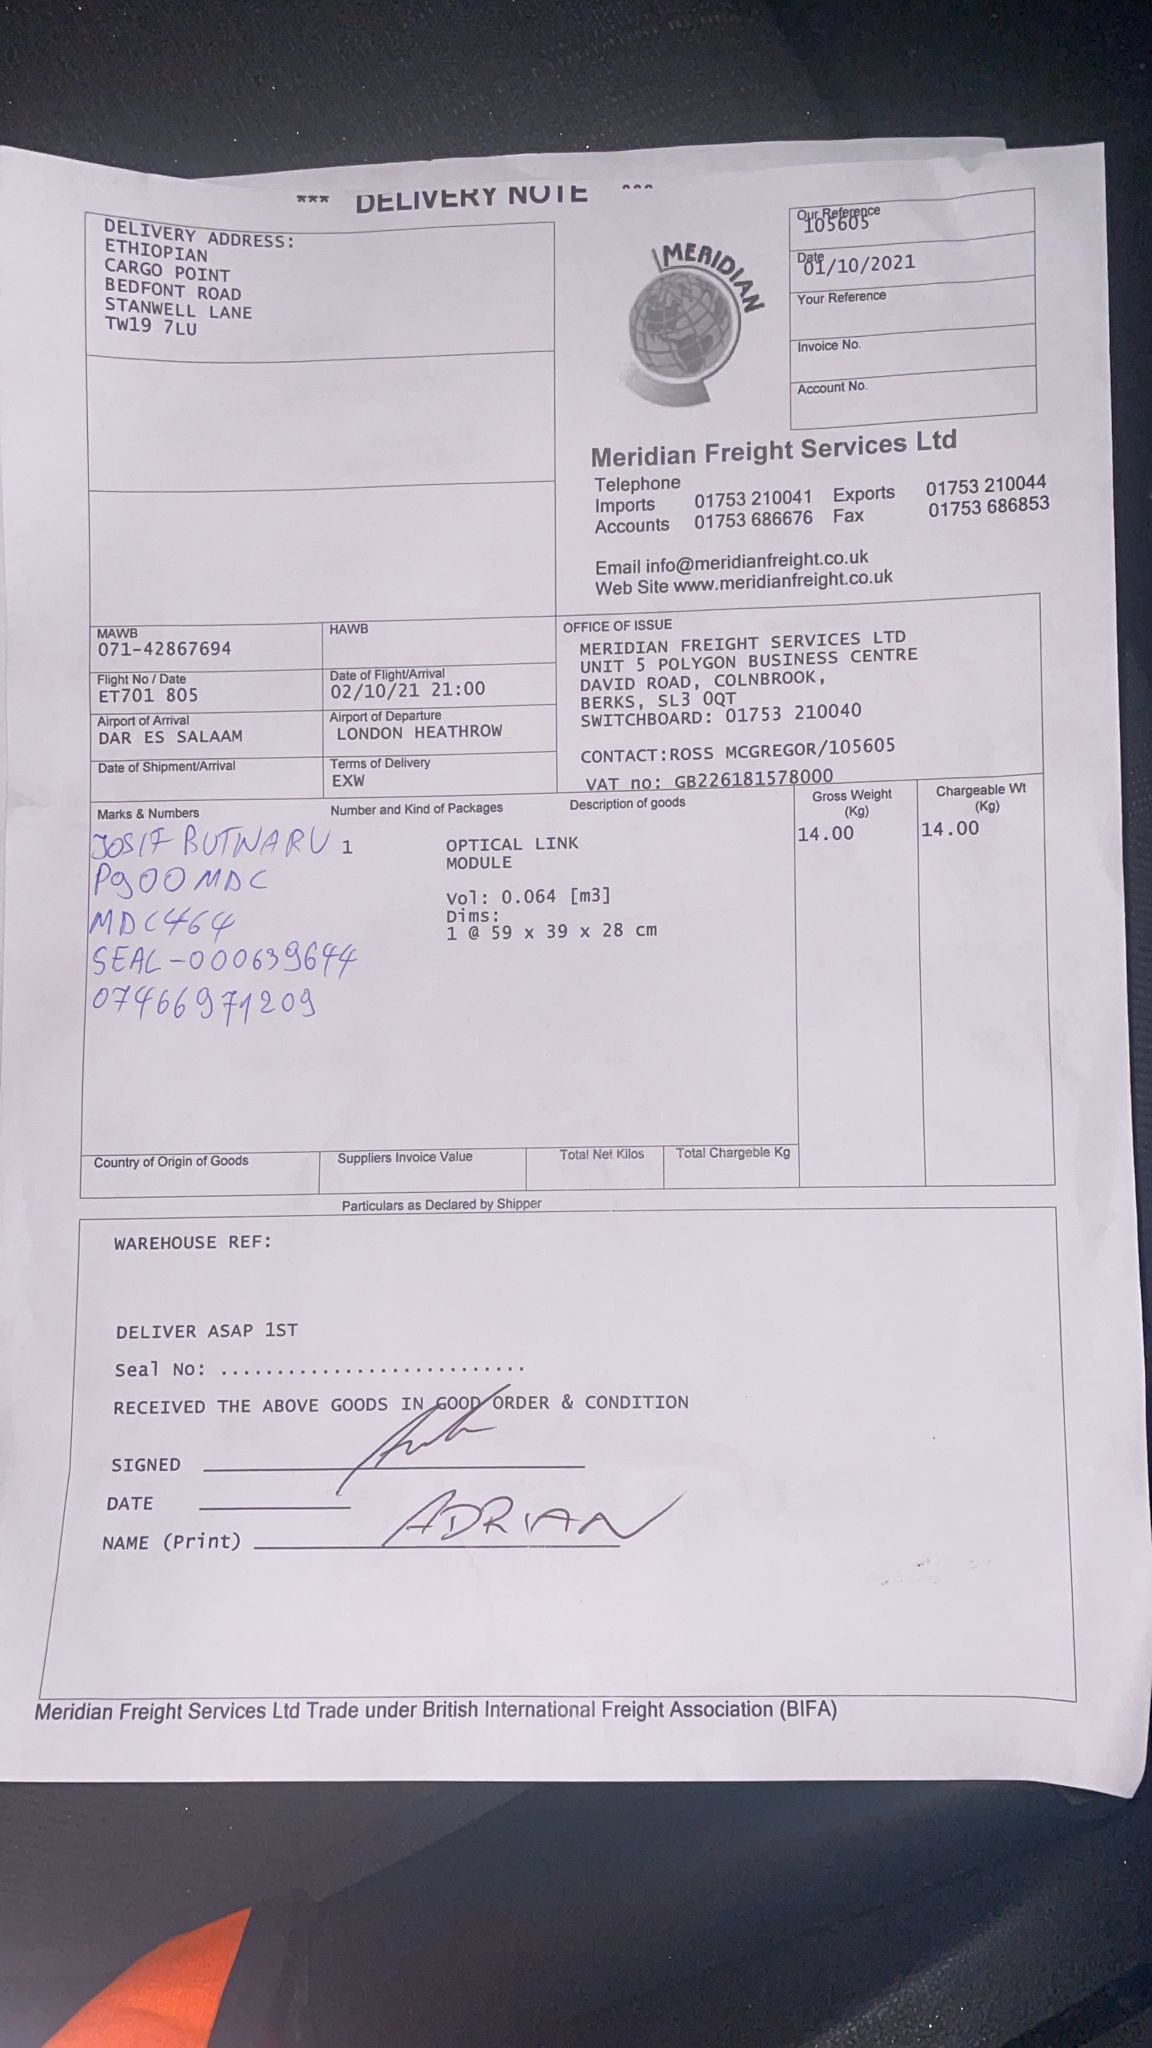 *** DELIVERY NOTE ***
DELIVERY ADDRESS:
ETHIOPIAN
CARGO POINT
BEDFONT ROAD
STANWELL LANE
TW19 7LU
MERIDIAN
Our Reference
105605
Date
01/10/2021
Your Reference
Invoice No.
Account No.
Meridian Freight Services Ltd
Telephone
Imports 01753 210041 Exports 01753 210044
Accounts 01753 686676 Fax 01753 686853
Email info@meridianfreight.co.uk
Web Site www.meridianfreight.co.uk
MAWB
071-42867694
HAWB
Flight No / Date
ET701 805
Date of Flight/Arrival
02/10/21 21:00
Airport of Arrival
DAR ES SALAAM
Airport of Departure
LONDON HEATHROW
Date of Shipment/Arrival
Terms of Delivery
EXW
OFFICE OF ISSUE
MERIDIAN FREIGHT SERVICES LTD
UNIT 5 POLYGON BUSINESS CENTRE
DAVID ROAD, COLNBROOK,
BERKS, SL3 0QT
SWITCHBOARD: 01753 210040
CONTACT:ROSS MCGREGOR/105605
VAT no: GB226181578000
Marks & Numbers Number and Kind of Packages Description of goods Gross Weight (Kg) Chargeable Wt (Kg)
JOSIF 1 OPTICAL LINK 14.00 14.00
MODULE
P900MDC
Vol: 0.064 [m3]
MDC464
Dims:
1 @ 59 x 39 x 28 cm
SEAL-000639644
07466971209
Country of Origin of Goods Suppliers Invoice Value Total Net Kilos Total Chargeble Kg
Particulars as Declared by Shipper
WAREHOUSE REF:
DELIVER ASAP 1ST
Seal No: ..........................
RECEIVED THE ABOVE GOODS IN GOOD ORDER & CONDITION
SIGNED
DATE
NAME (Print) ADRIAN
Meridian Freight Services Ltd Trade under British International Freight Association (BIFA)